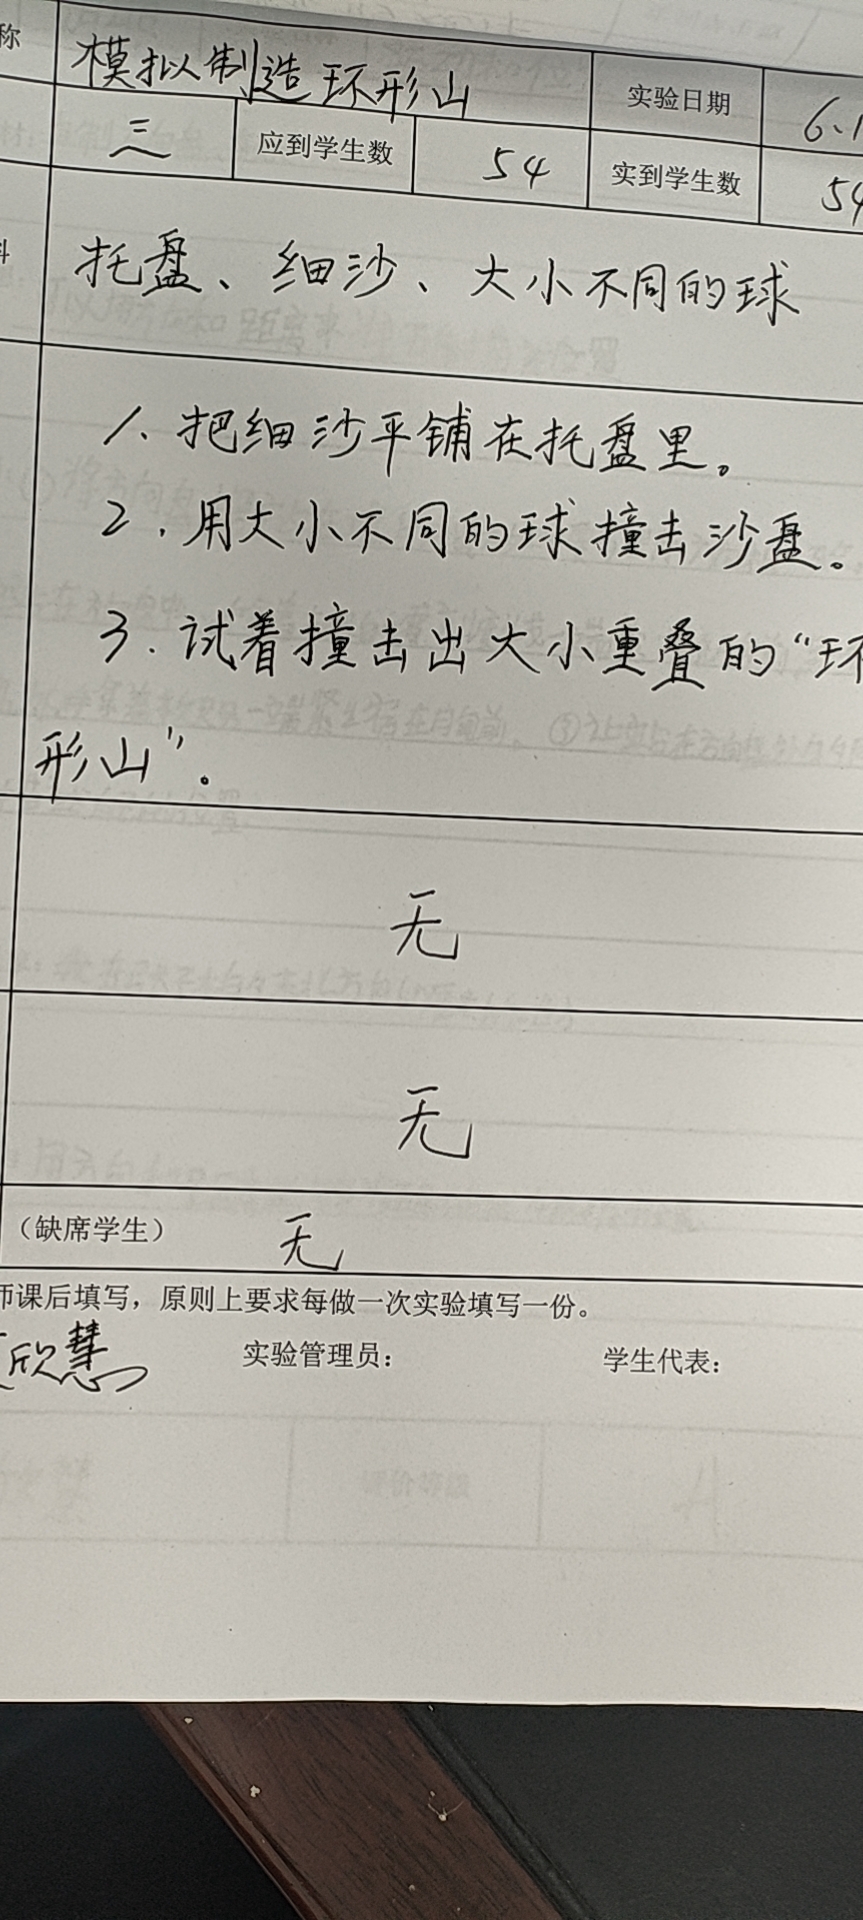 称 模拟制造环形山 实验日期 6.1
三 应到学生数 54 实到学生数 54
料 托盘、细沙、大小不同的球
1、把细沙平铺在托盘里。
2.用大小不同的球撞击沙盘。
3.试着撞击出大小重叠的“环
形山”。
无
无
（缺席学生） 无
师课后填写，原则上要求每做一次实验填写一份。
欣慧 实验管理员： 学生代表：
评价等级